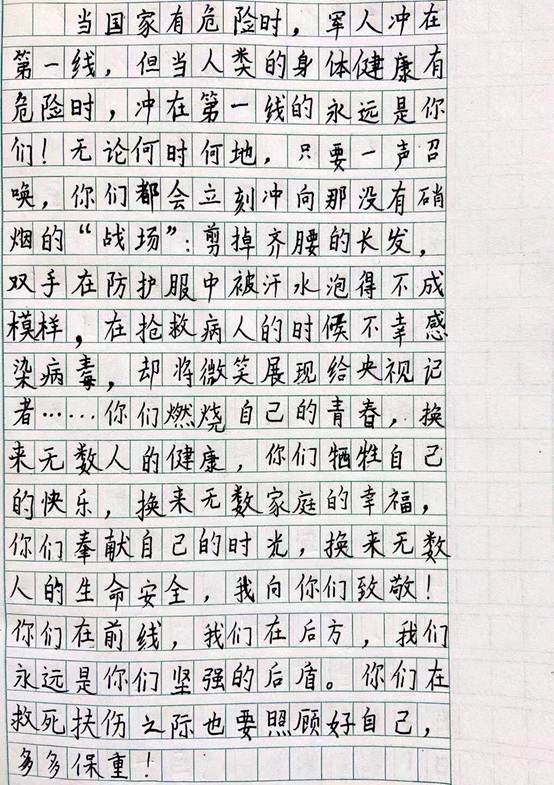 当国家有危险时，军人冲在
第一线，但当人类的身体健康有
危险时，冲在第一线的永远是你
们！无论何时何地，只要一声召
唤，你们都会立刻冲向那没有硝
烟的“战场”：剪掉齐腰的长发，
双手在防护服中被汗水泡得不成
模样，在抢救病人的时候不幸感
染病毒，却将微笑展现给央视记
者……你们燃烧自己的青春，换
来无数人的健康，你们牺牲自己
的快乐，换来无数家庭的幸福，
你们奉献自己的时光，换来无数
人的生命安全，我向你们致敬！
你们在前线，我们在后方，我们
永远是你们坚强的后盾。你们在
救死扶伤之际也要照顾好自己，
多多保重！